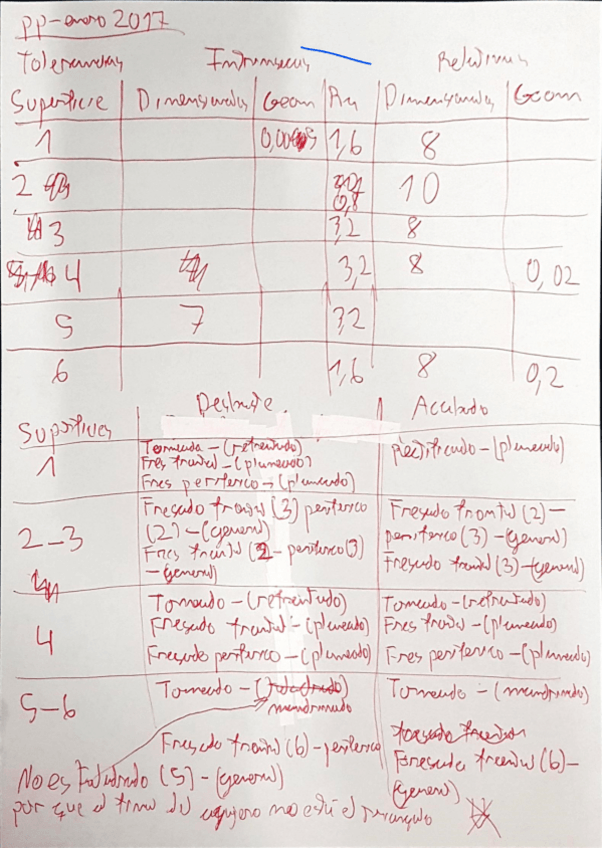 PP-enero 2017
Tolerancias Intrinsecas Relativas
Superficie Dimensionales Geom Ra Dimensionales Geom
1 1,6 8
2 0,8 10
3 3,2 8
4 3,2 8 0,02
5 7 3,2
6 1,6 8 0,2
Superficies Desbaste Acabado
1 Torneado-(refrentado) Rectificado-(planeado)
Fres frontal-(planeado)
Fres periferico-(planeado)
2-3 Fresado frontal (3) periferico Fresado frontal (2)-
(2)-(general) periferico (3)-(general)
Fres frontal (2-periferico(3) Fresado frontal (3)-(general)
-(general)
4 Torneado-(refrentado) Torneado-(refrentado)
Fresado frontal-(planeado) Fres frontal-(planeado)
Fresado periferico-(planeado) Fres periferico-(planeado)
5-6 Torneado- Torneado-(mandrinado)
mandrinado
Fresado frontal (6)-periferico Fresado frontal (6)-
No es (5)-(general) (general)
por que el del agujero no esta el